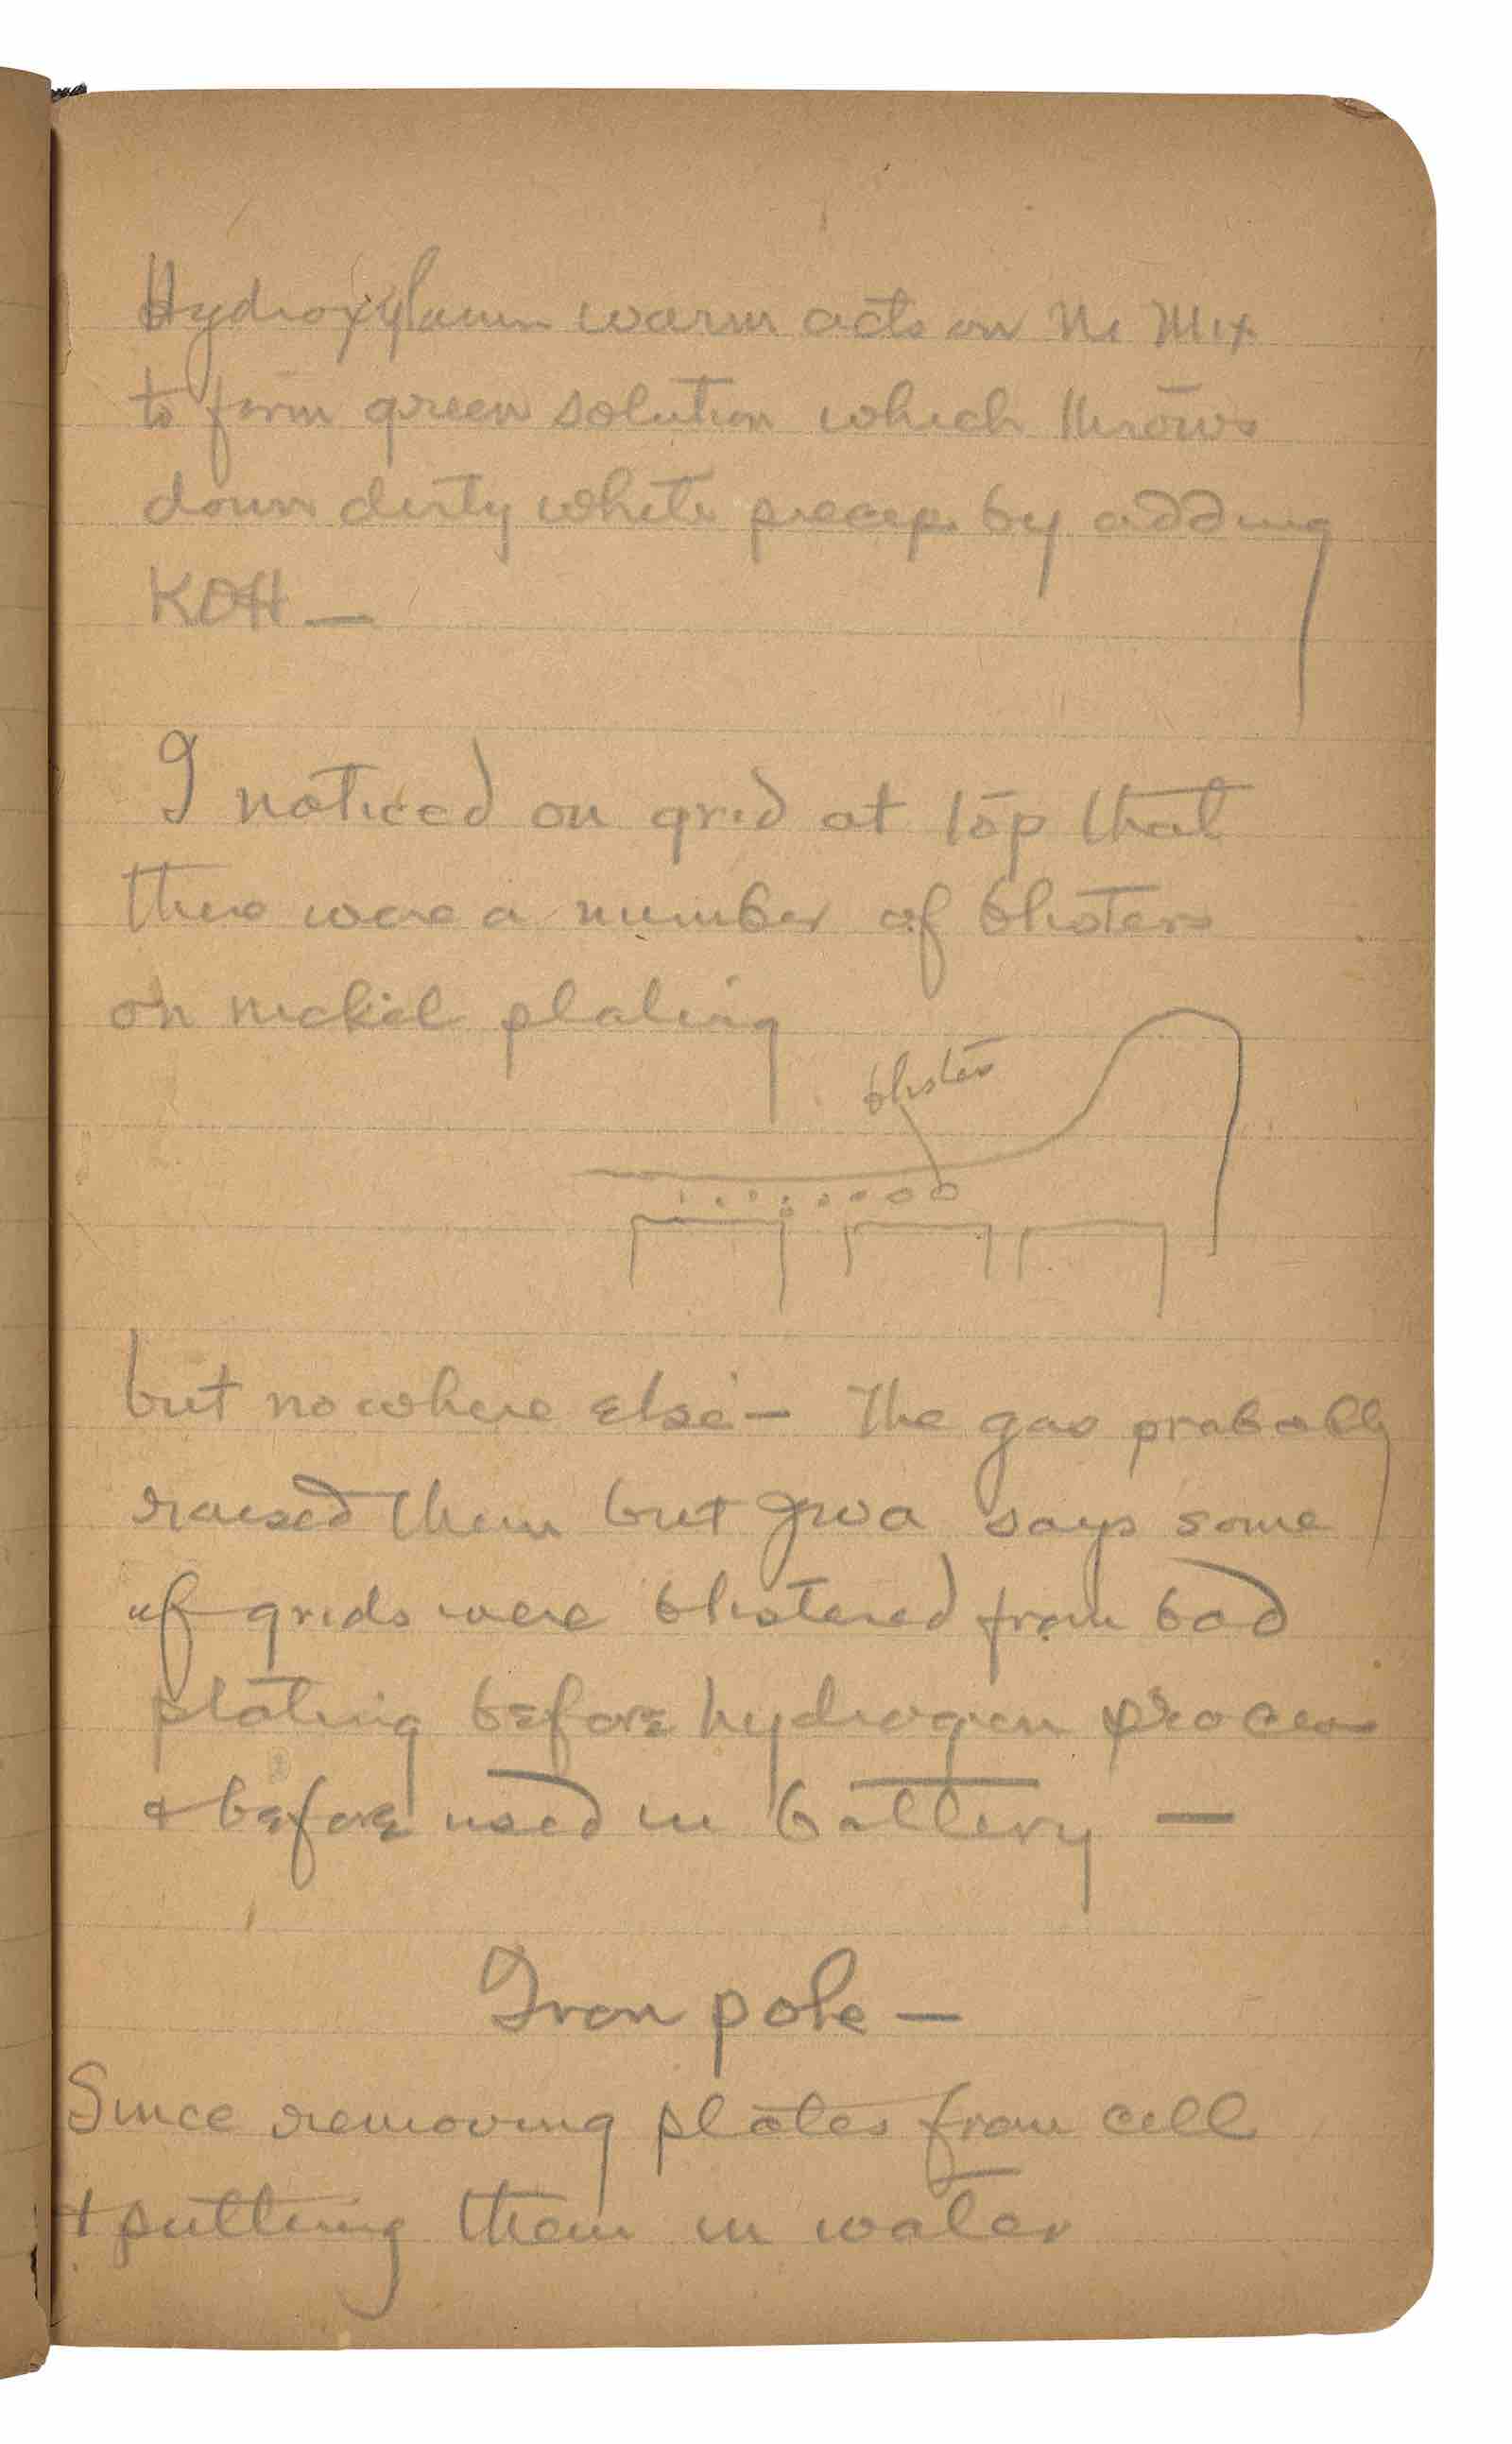 Hydroxylamin warm acts on Ni Mix
to form green solution which throws
down dirty white precip. by adding
KOH —
I noticed on grid at top that
there were a number of blisters
on nickel plating
blister
but nowhere else — The gas probably
raised them but Jwa says some
of grids were blistered from bad
plating before hydrogen process
& before used in battery —
Iron pole —
Since removing plates from cell
& putting them in water